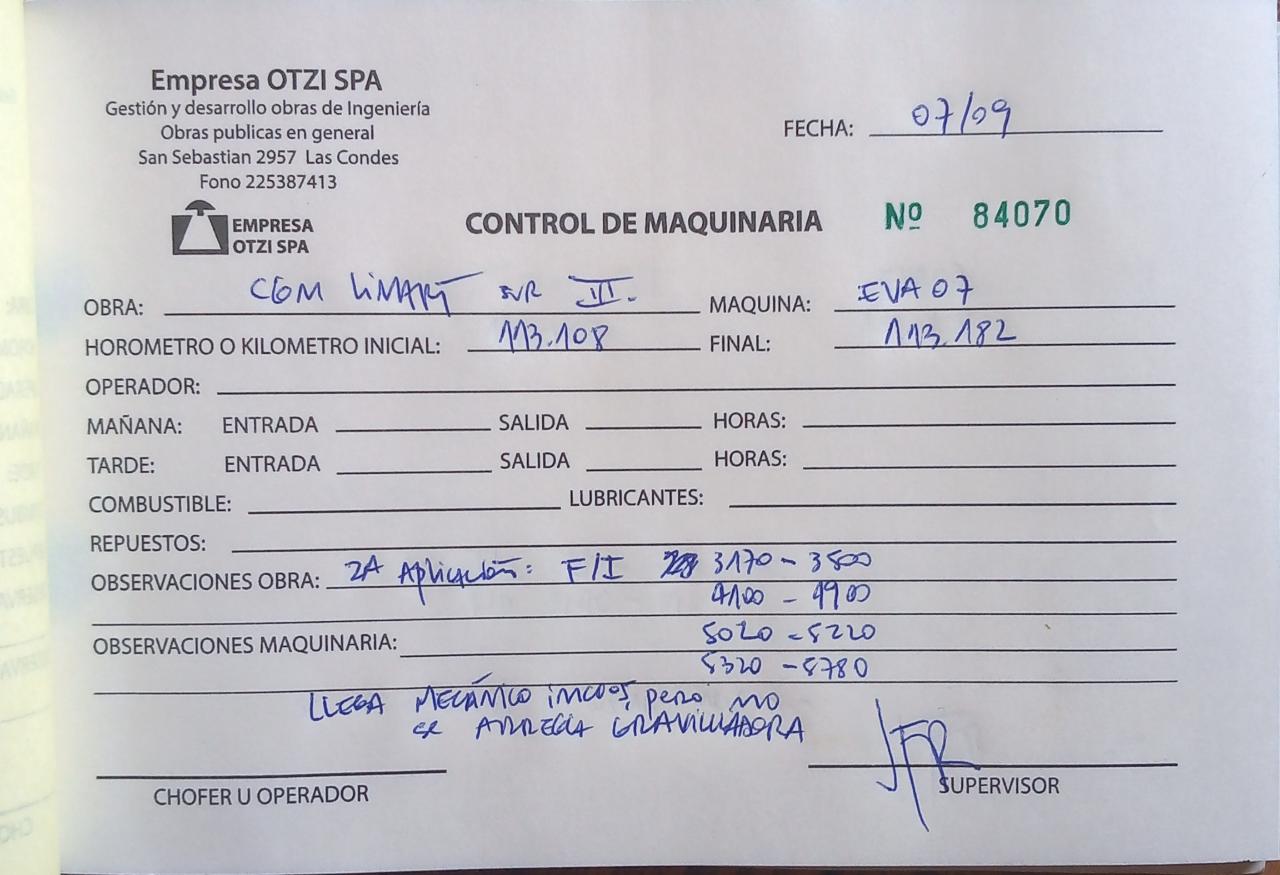 Empresa OTZI SPA
Gestión y desarrollo obras de Ingeniería
Obras publicas en general
San Sebastian 2957 Las Condes
Fono 225387413
FECHA: 07/09
EMPRESA
OTZI SPA
CONTROL DE MAQUINARIA Nº 84070
OBRA: CGM LiMARÍ SUR III. MAQUINA: EVA 07
HOROMETRO O KILOMETRO INICIAL: 113.108 FINAL: 113.182
OPERADOR:
MAÑANA: ENTRADA SALIDA HORAS:
TARDE: ENTRADA SALIDA HORAS:
COMBUSTIBLE: LUBRICANTES:
REPUESTOS:
OBSERVACIONES OBRA: 2A Aplicación: F/I 3170 - 3500
4100 - 4900
5020 - 5220
OBSERVACIONES MAQUINARIA:
5320 - 5780
LLEGA MECÁNICO pero no
se ARREGLA GRAVILLADORA
JFR
CHOFER U OPERADOR SUPERVISOR